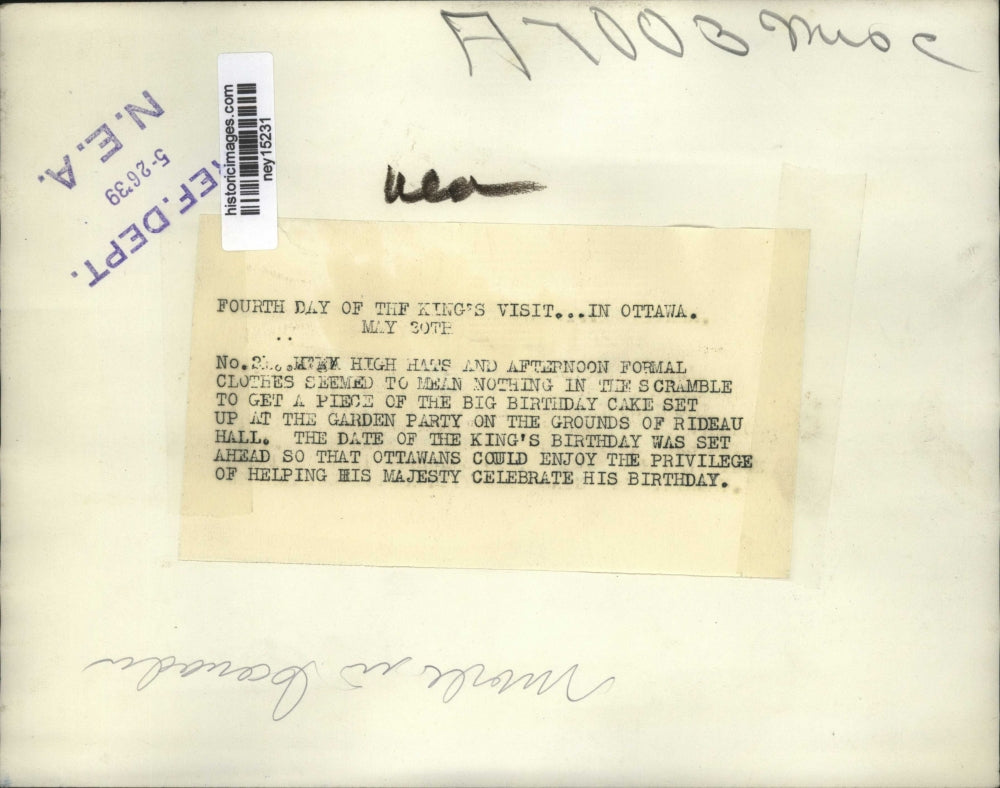 A7003 misc
N.E.A.
5-26 39
REF. DEPT.
historicimages.com
ney15231
nea
FOURTH DAY OF THE KING'S VISIT...IN OTTAWA.
MAY 20TH
HIGH HATS AND AFTERNOON FORMAL
CLOTHES SEEMED TO MEAN NOTHING IN THE SCRAMBLE
TO GET A PIECE OF THE BIG BIRTHDAY CAKE SET
UP AT THE GARDEN PARTY ON THE GROUNDS OF RIDEAU
HALL. THE DATE OF THE KING'S BIRTHDAY WAS SET
AHEAD SO THAT OTTAWANS COULD ENJOY THE PRIVILEGE
OF HELPING HIS MAJESTY CELEBRATE HIS BIRTHDAY.
in Canada